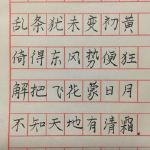 乱条犹未变初黄
倚得东风势便狂
解把飞花蒙日月
不知天地有清霜